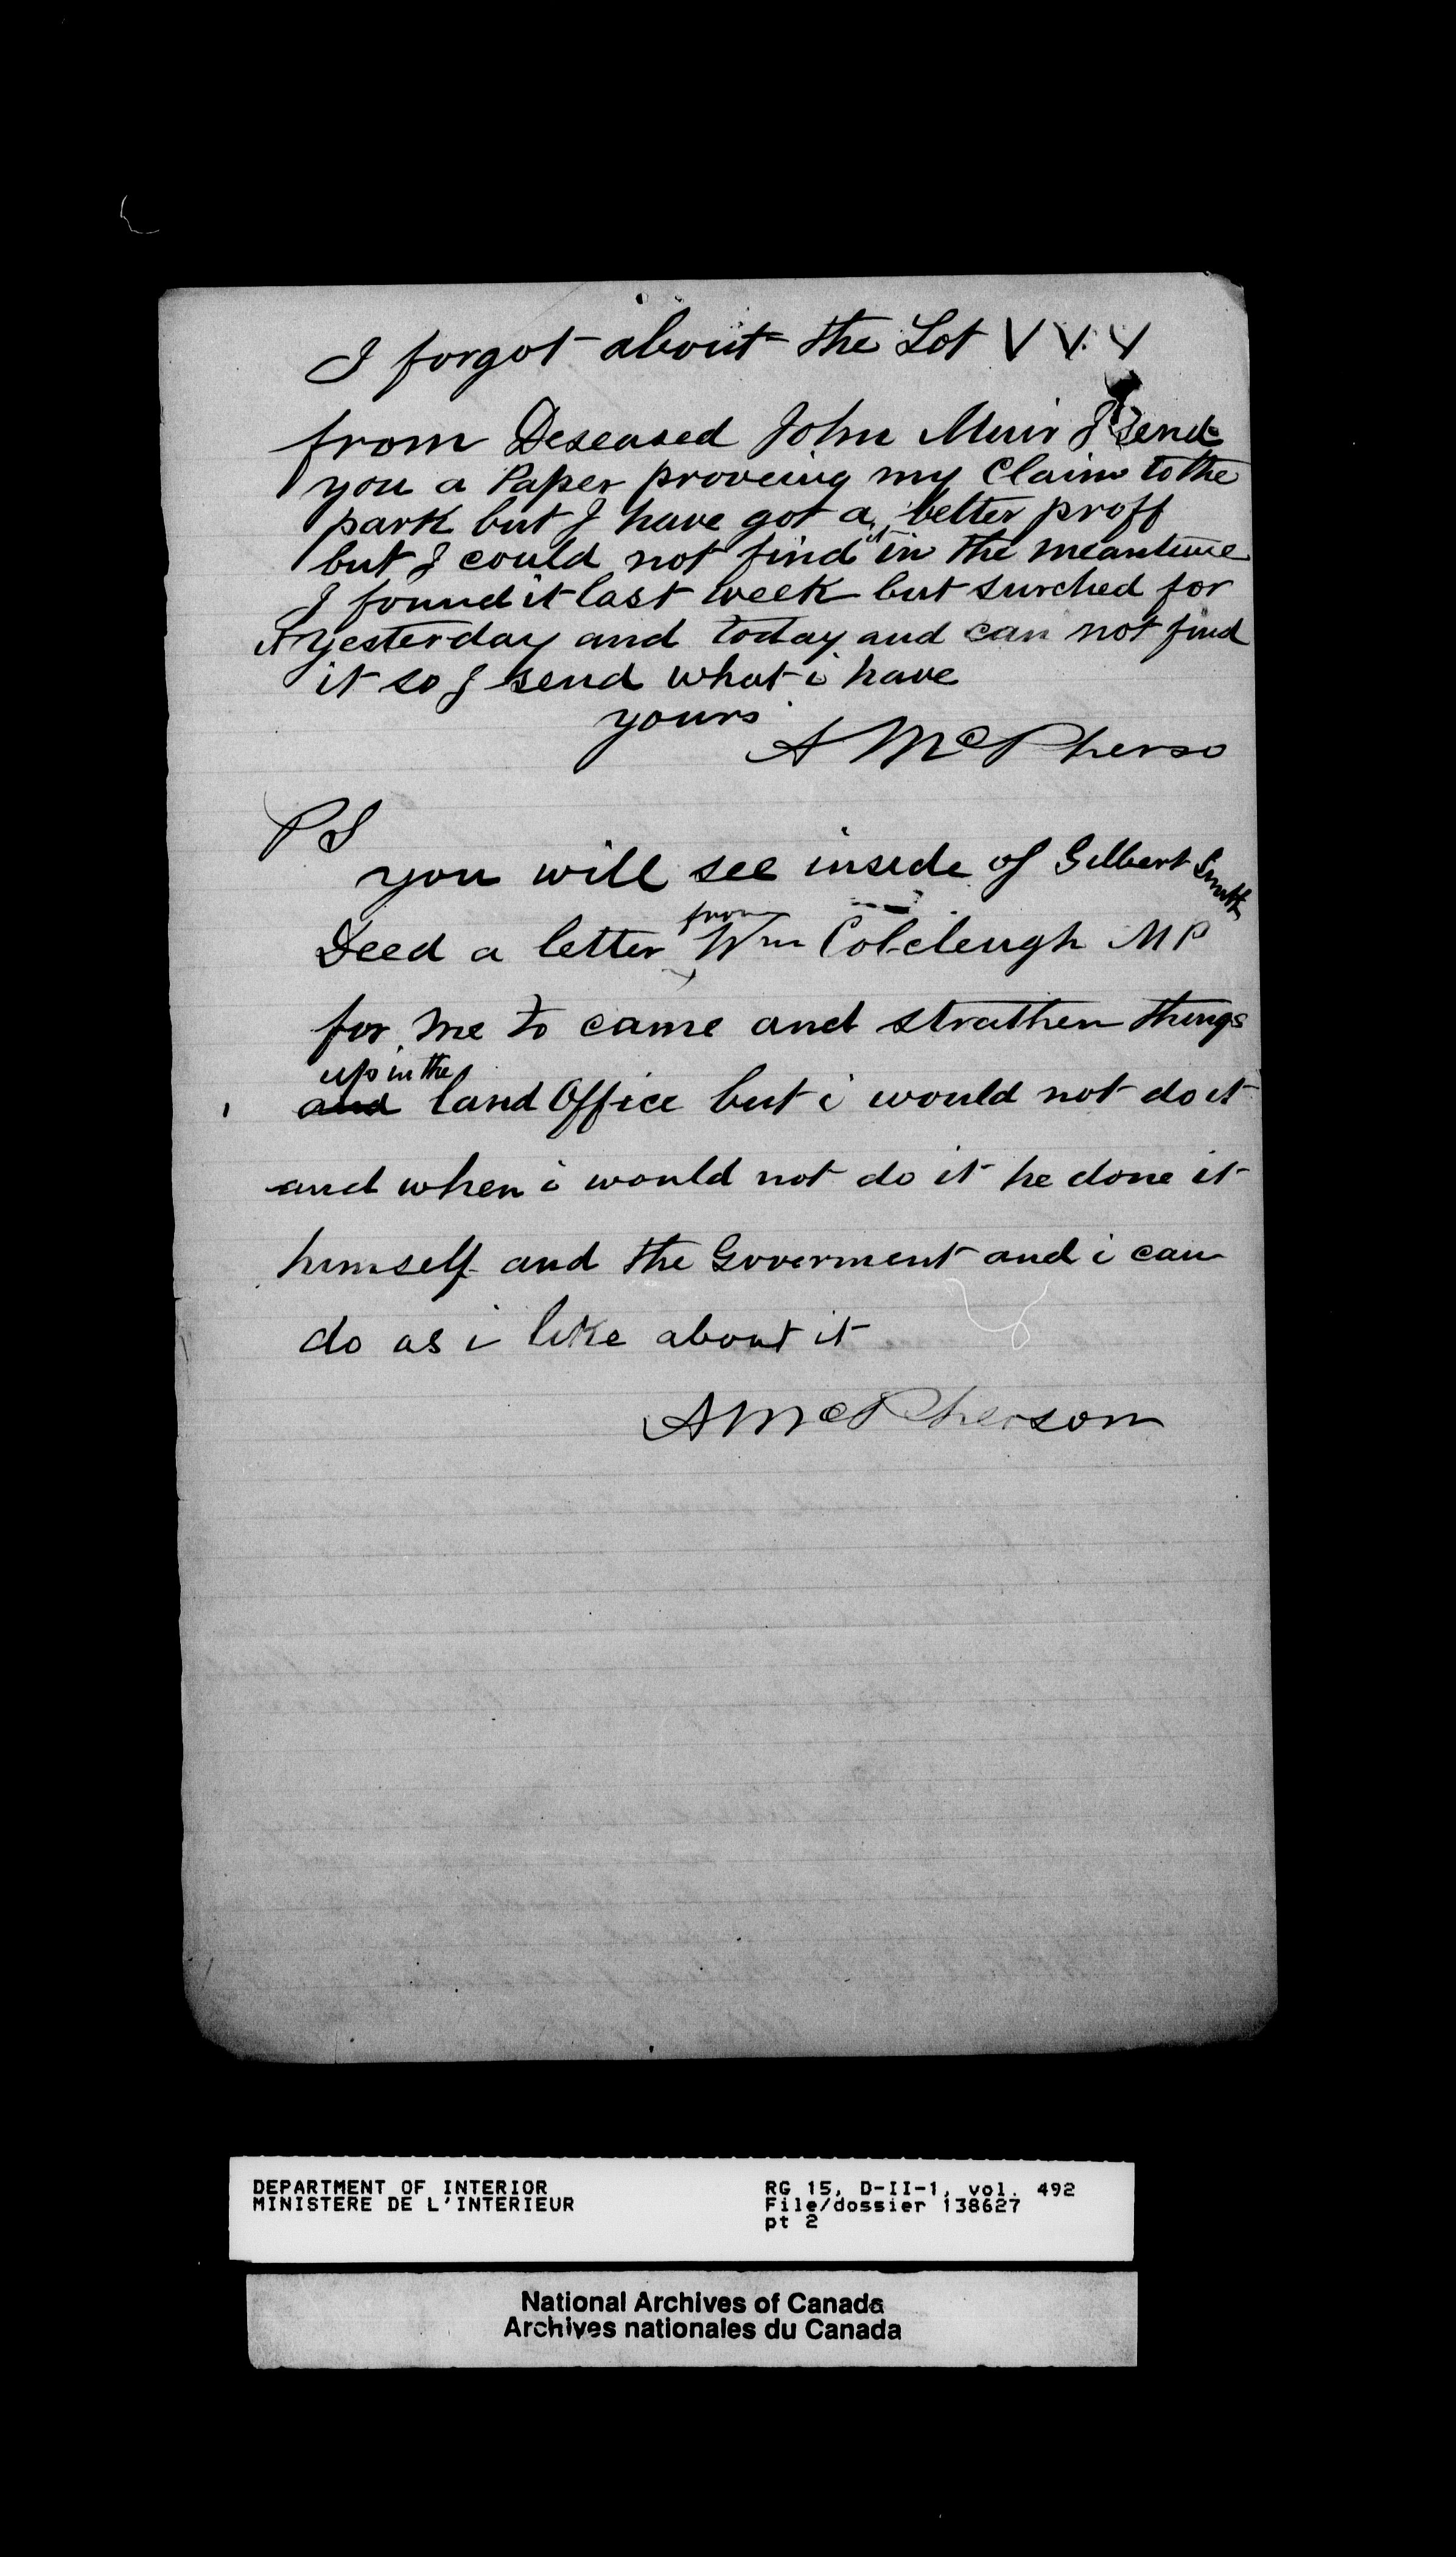 I forgot about the Lot V V. V
from Deseased John Muir I send
you a Paper proveing my Claim to the
park but I have got a better proff
but I could not find it in the meantime
I found it last week but surched for
it yesterday and today and can not find
it so I send what i have
yours
A McPherso
PS
you will see inside of Gilbert Smith
Deed a letter from Wm Colcleugh MP
for me to came and strathen things
up in the
and land Office but i would not do it
and when i would not do it he done it
himself and the Goverment and i can
do as i like about it
A McPherson
DEPARTMENT OF INTERIOR
MINISTERE DE L'INTERIEUR
RG 15, D-II-1, vol. 492
File/dossier 138627
pt 2
National Archives of Canada
Archives nationales du Canada